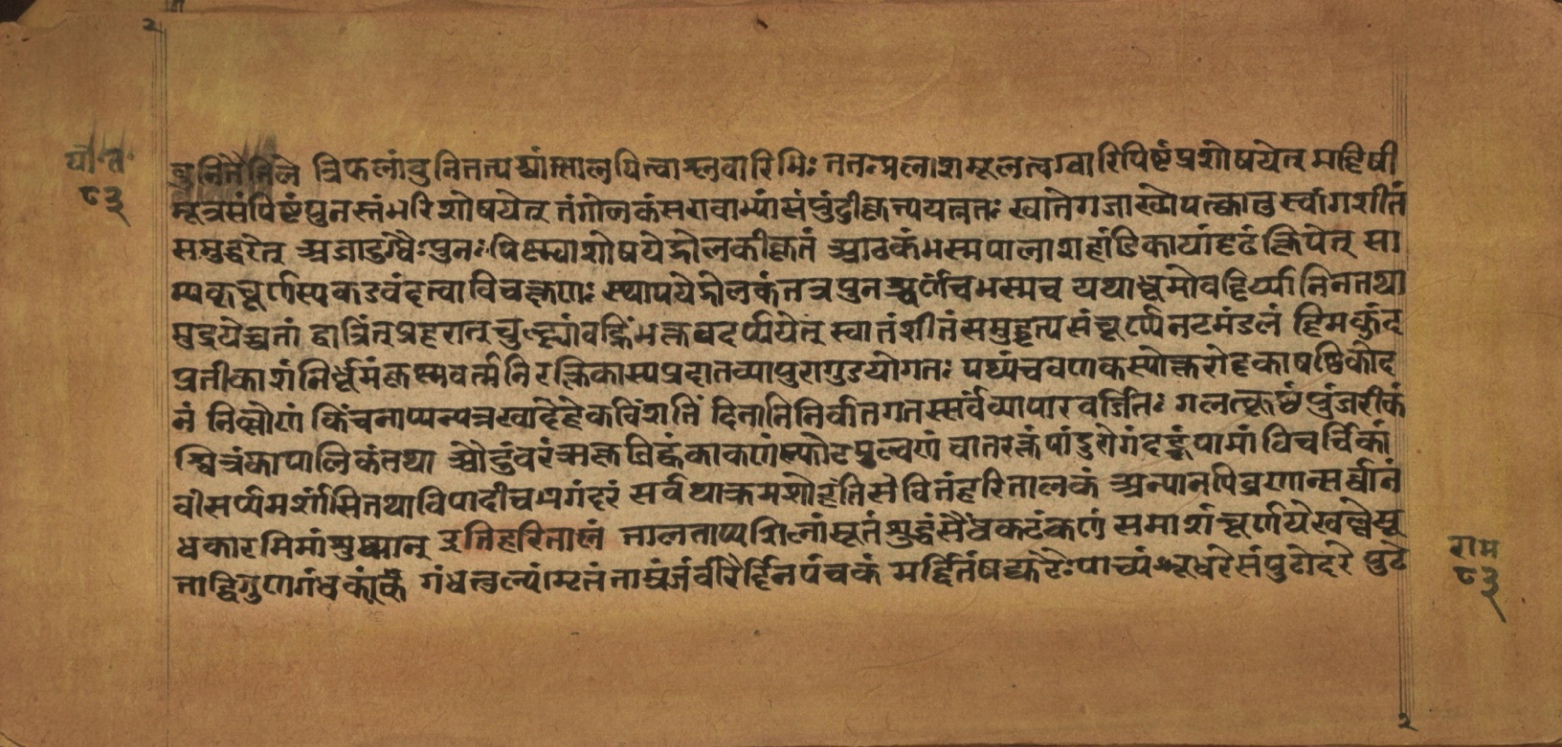 यो॰त॰
८३
वुनितैनिले त्रिफलांवुनितत्पश्चात्क्षालयित्वाम्लवारिभिः ततःपलाशमूलत्वग्वारिपिष्टंप्रशोषयेत् महिषी
मूत्रसंपिष्टंपुनस्तंभरिशोषयेत् तंगोलकंसरावाभ्यांसंपुंटीकृत्ययत्नतः खातेगजाख्येपत्कातुस्वांगशीतं
समुद्धरेत् अजादुग्धैःपुनःपिष्ट्वाशोषयेद्गोलकीकृतं आढकंभस्मपालाशहांटिकायांदृढंक्षिपेत् सा
म्यकृच्चूर्णस्यकडवंदत्वाविचक्षणः स्थापयेद्गोलकंतत्रपुनश्चूर्णंचभस्मच यथाधूमोवहिर्य्यातिनतथा
मुद्रयेच्चतां द्वात्रिंत्प्रहरान्चुल्ल्यांवह्निंभक्तवदर्प्ययेत् स्वातंशीतंसमुद्धृत्यसंचूर्ण्येनटमंडलं हिमकुंद
प्रतीकाशंनिर्धूमंकृष्णवर्त्मनिरक्तिकास्यप्रदातव्यापुरागुडयोगतः पथ्यंचवणकस्योक्तरोटकाषष्टिकोद
नं निर्ल्लोणं किंचनाप्यन्यन्नखादेदेकविंशतिं दिनानिनिर्वातगतस्सर्वव्यापारवर्जितः गलत्कुष्ठंपुंजरीकं
श्वित्रंकापालिकंतथा औदुंवरंऋक्षजिह्वंकाकणंस्फोटमुल्वणं वातरक्तंपांडुरोगंदद्रूंपामांविचर्चिकां
वीसर्प्यमर्शांसितथाविपादीचभगंदरं सर्वथाक्रमशोहंतिसेवितंहरितालकं अन्यानपिव्रणान्सर्वान
धकारमिमांशुमान् इतिहरितालं तालताप्यशिलांसूतंशुद्धंसैंधकटंकणं समाशंचूर्णयेखल्वेसू
ताद्विगुणगंधकं गंधतुल्यंमृतंताम्रंजंवीरैर्दिनपंचकं मर्द्दितंषट्पुटेःपाच्यंभूधरेसंपुटोदरे पुटे
राम
८३